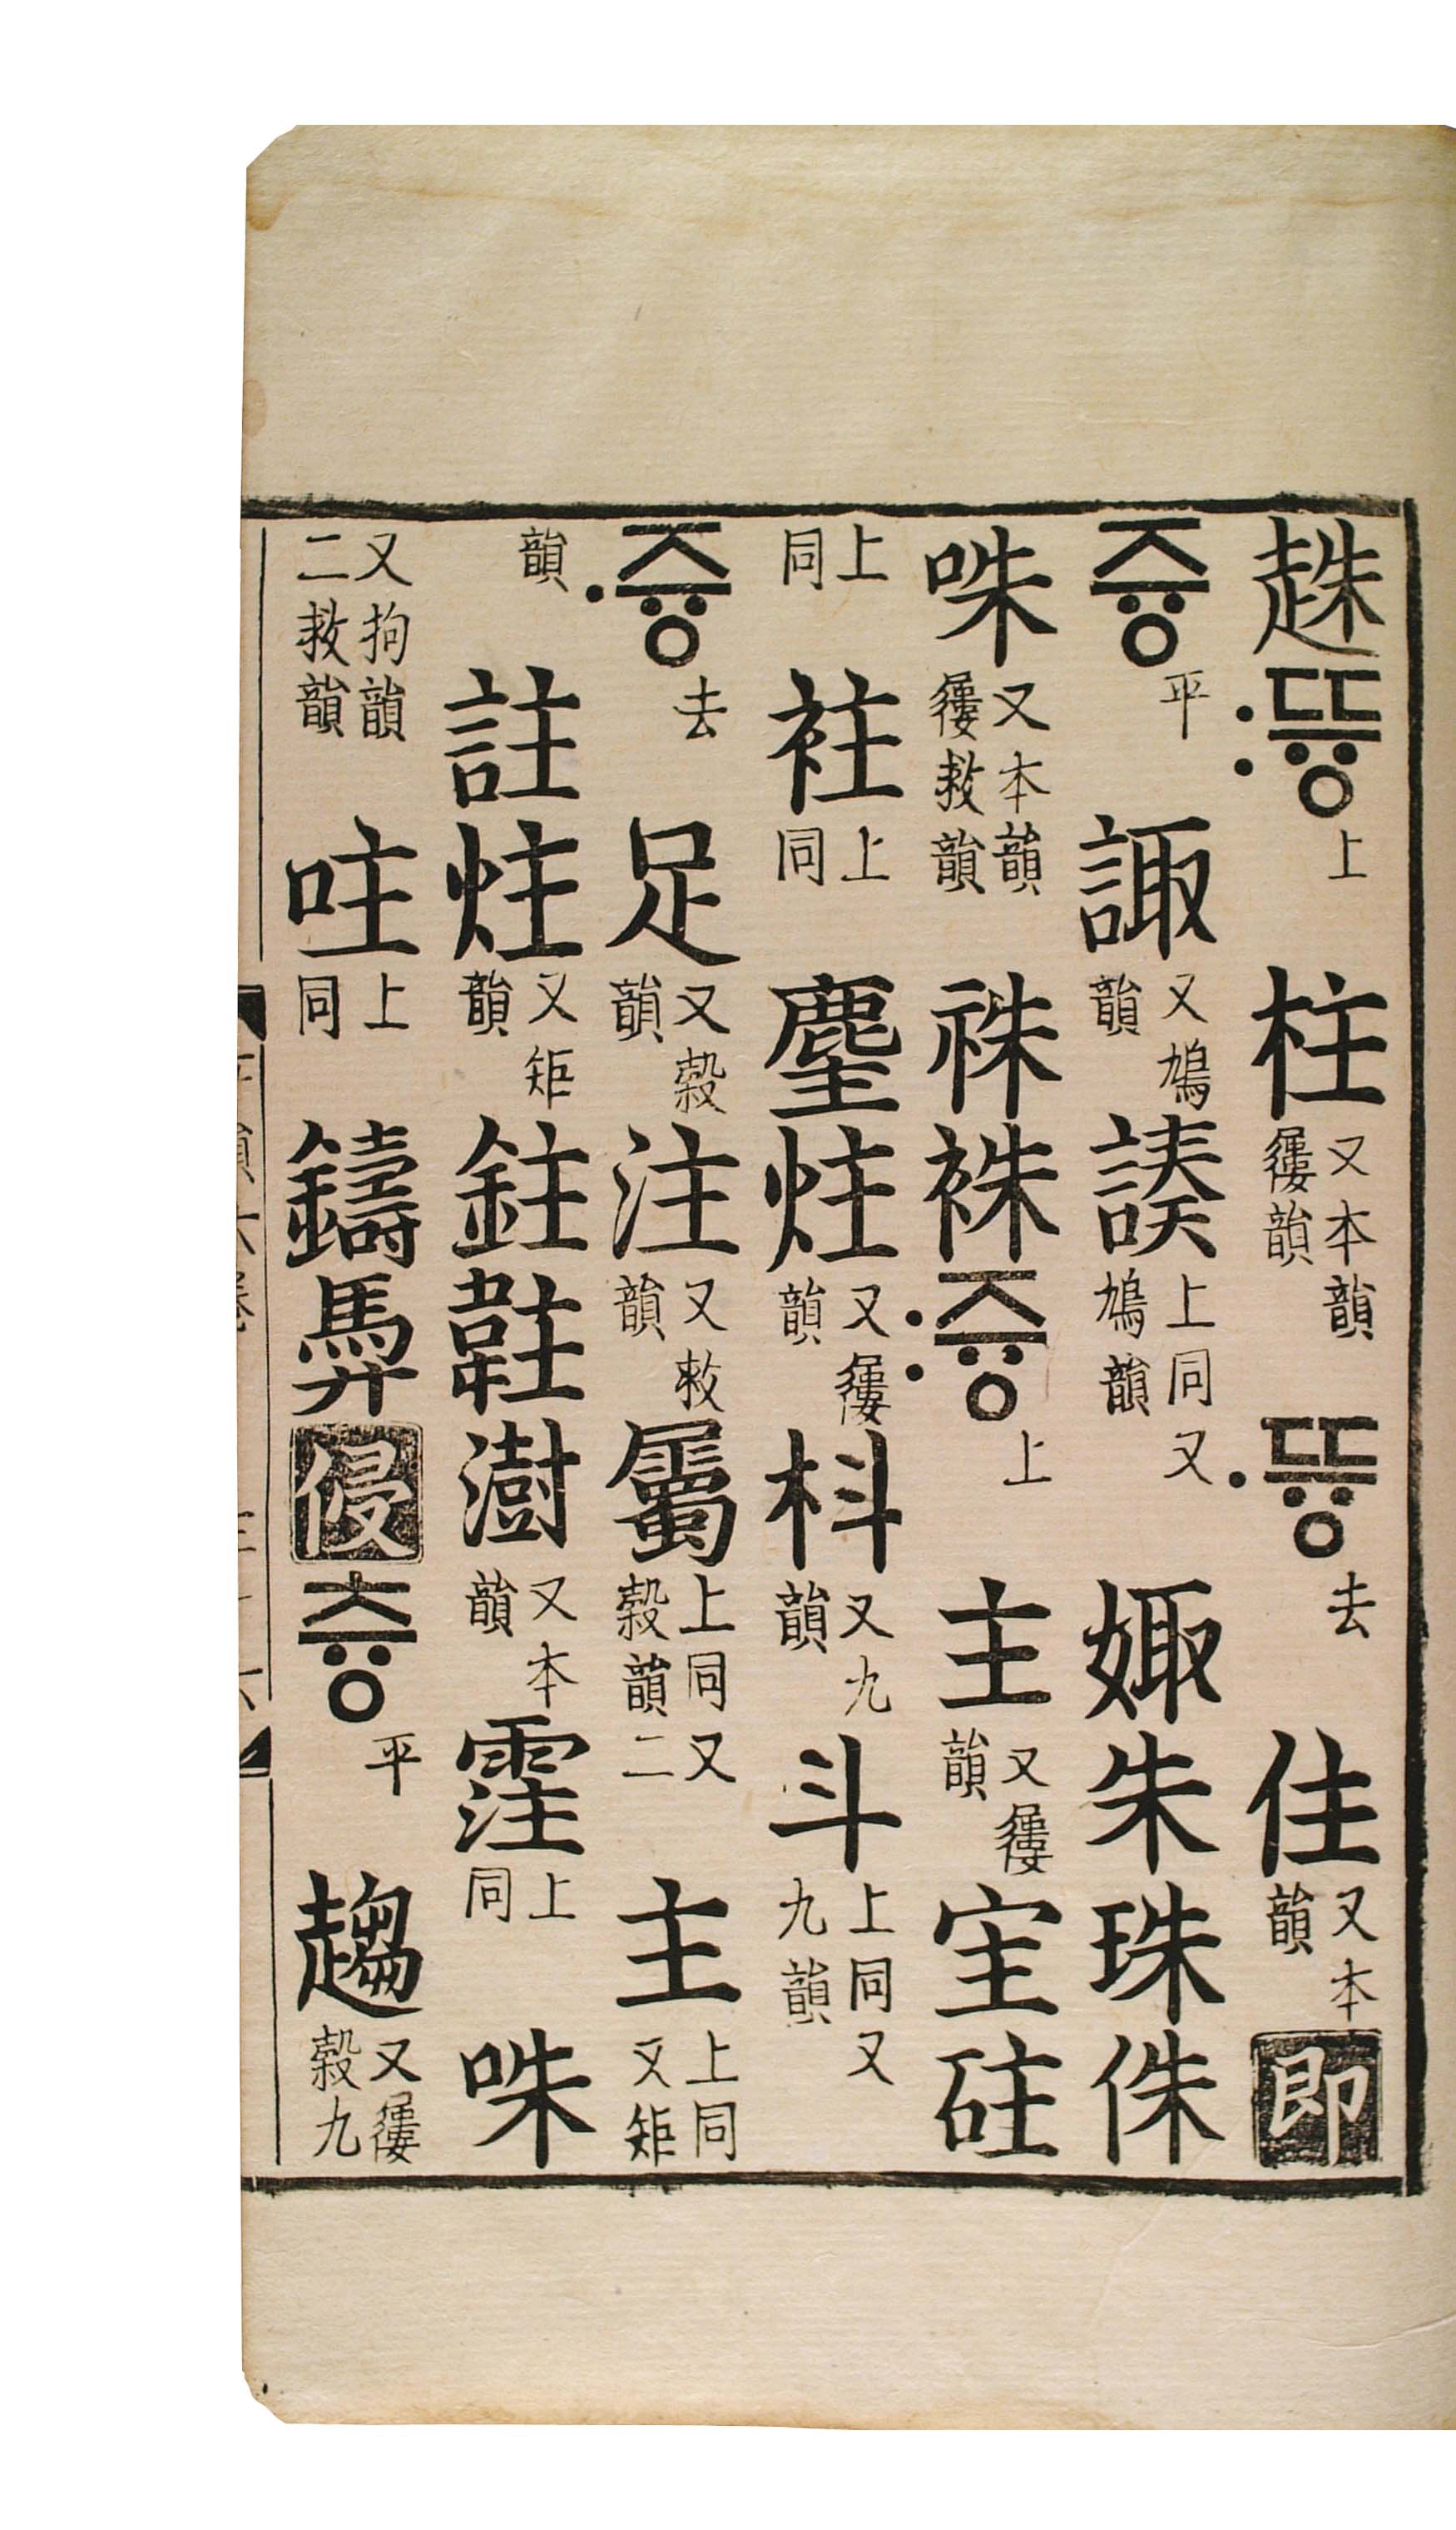 趎뜡〯上柱又本韻屨韻뜡〮去住又本韻即
즁平諏又鳩韻上同又鳩韻娵朱珠侏
咮又本韻屨救韻祩袾즁〯上主又屨韻宔砫
上同上同麈炷又屨韻枓又九韻斗上同又九韻
즁〮去足又穀韻注又救韻屬上同又二穀韻主上同又矩
韻註炷又矩韻鉒澍又本韻霔上同咮
又拘韻二救韻上同鑄侵츙平趨又屨穀九